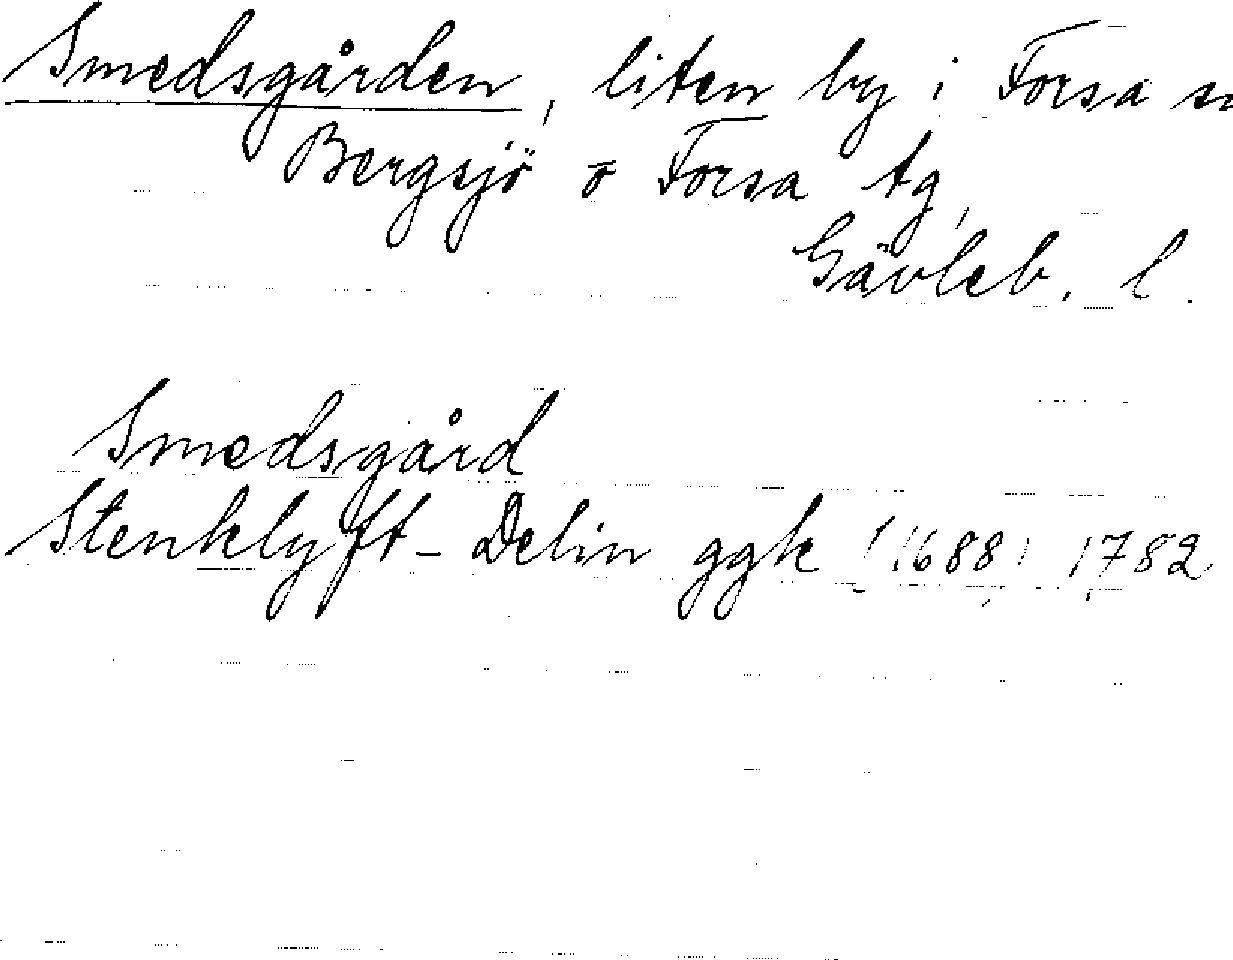 Smedsgården, liten by i Forsa sn
Bergsjö o Forsa tg,
Gävleb. l.
Smedsgård
Stenklyft-Delin ggk (1688) 1782